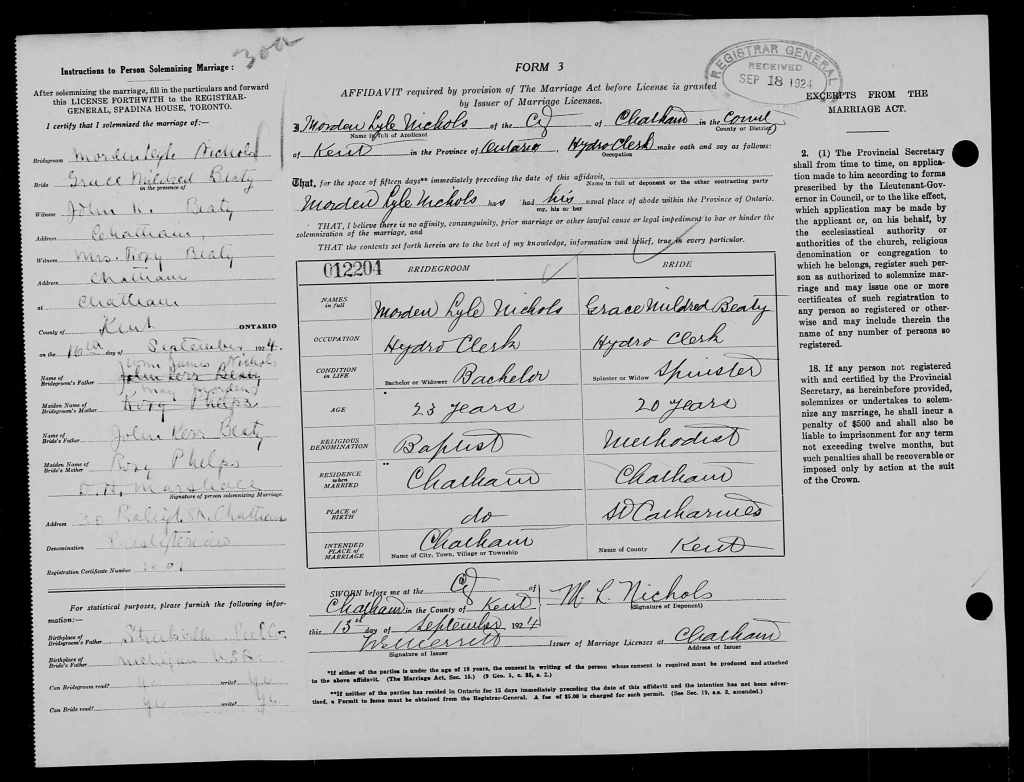 30a
Instructions to Person Solemnizing Marriage:
After solemnizing the marriage, fill in the particulars and forward
this LICENSE FORTHWITH to the REGISTRAR-
GENERAL, SPADINA HOUSE, TORONTO.
I certify that I solemnized the marriage of:—
Bridegroom Morden Lyle Nichols
Bride Grace Mildred Beaty
in the presence of
Witness John K. Beaty
Address Chatham,
Witness Mrs. Rosy Beaty
Address Chatham
at Chatham
County of Kent ONTARIO
on the 16th day of September 1924.
James Nichols
Name of Bridegroom's Father John Kerr Beaty
Morden
Maiden Name of Bridegroom's Mother Rosy Phelps
Name of Bride's Father John Kerr Beaty
Maiden Name of Bride's Mother Rosy Phelps
Signature of person solemnizing Marriage.
Address 30 St. Chatham
Denomination Presbyterian
Registration Certificate Number
For statistical purposes, please furnish the following infor-
mation:—
Birthplace of Bridegroom's Father
Birthplace of Bride's Father Michigan U.S.A.
Can Bridegroom read? write?
Can Bride read? write?
FORM 3
AFFIDAVIT required by provision of The Marriage Act before License is granted
by Issuer of Marriage Licenses.
I, Morden Lyle Nichols of the City of Chatham in the County
Name in full of Applicant County or District
of Kent in the Province of Ontario, Hydro Clerk make oath and say as follows:
Occupation
That, for the space of fifteen days** immediately preceding the date of this affidavit,
Name in full of deponent or the other contracting party
Morden Lyle Nichols has had his usual place of abode within the Province of Ontario.
my, his or her
THAT, I believe there is no affinity, consanguinity, prior marriage or other lawful cause or legal impediment to bar or hinder the
solemnization of the marriage, and
THAT the contents set forth herein are to the best of my knowledge, information and belief, true in every particular.
012204 BRIDEGROOM BRIDE
NAMES in full Morden Lyle Nichols Grace Mildred Beaty
OCCUPATION Hydro Clerk Hydro Clerk
CONDITION in LIFE Bachelor or Widower Bachelor Spinster or Widow Spinster
AGE 23 years 20 years
RELIGIOUS DENOMINATION Baptist Methodist
RESIDENCE when MARRIED Chatham Chatham
PLACE of BIRTH do St Catharines
INTENDED PLACE of MARRIAGE Chatham Name of County Kent
Name of City, Town, Village or Township
SWORN before me at the City of
Chatham in the County of Kent M. L. Nichols
(Signature of Deponent)
this 15th day of September 1924
Issuer of Marriage Licenses at Chatham
Signature of Issuer Address of Issuer
*If either of the parties is under the age of 18 years, the consent in writing of the person whose consent is required must be produced and attached
to the above affidavit. (The Marriage Act, Sec. 15.) (9 Geo. 5, c. 35, s. 2.)
**If neither of the parties has resided in Ontario for 15 days immediately preceding the date of this affidavit and the intention has not been adver-
tised, a Permit to Issue must be obtained from the Registrar-General. A fee of $5.00 is charged for such permit. (See Sec. 19, s.s. 2, amended.)
REGISTRAR GENERAL
RECEIVED
SEP 18 1924
EXCERPTS FROM THE
MARRIAGE ACT.
2. (1) The Provincial Secretary
shall from time to time, on applica-
tion made to him according to forms
prescribed by the Lieutenant-Gov-
ernor in Council, or to the like effect,
which application may be made by
the applicant or, on his behalf, by
the ecclesiastical authority or
authorities of the church, religious
denomination or congregation to
which he belongs, register such per-
son as authorized to solemnize mar-
riage and may issue one or more
certificates of such registration to
any person so registered or other-
wise and may include therein the
name of any number of persons so
registered.
18. If any person not registered
with and certified by the Provincial
Secretary, as hereinbefore provided,
solemnizes or undertakes to solem-
nize any marriage, he shall incur a
penalty of $500 and shall also be
liable to imprisonment for any term
not exceeding twelve months, but
such penalties shall be recoverable or
imposed only by action at the suit
of the Crown.